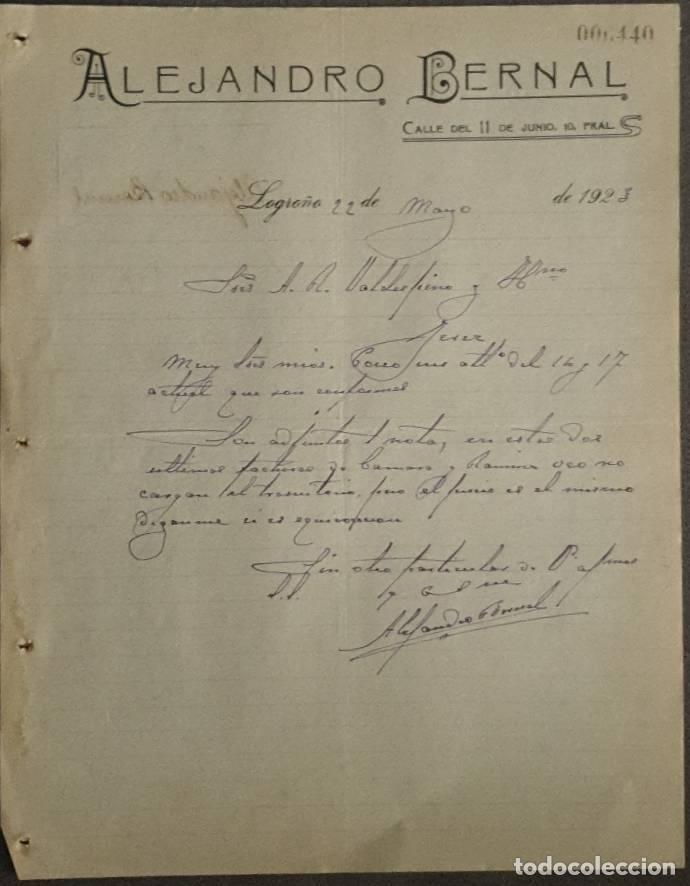 006440
ALEJANDRO BERNAL
CALLE DEL 11 DE JUNIO, 10, PRAL.
Logroño 22 de Mayo de 1923
Sres A. R. Valdespino y Hmo
Jerez
Muy Sres mios. Poseo sus attas del 14 y 17
actual que son conformes
Son adjuntos 1 nota, en estas dos
ultimas facturas de Camara y Ramirez veo no
cargan el transitorio, pero el precio es el mismo
diganme si es equivocacion
Sin otro particular de V.
s. s. q e s m
Alejandro Bernal
todocoleccion